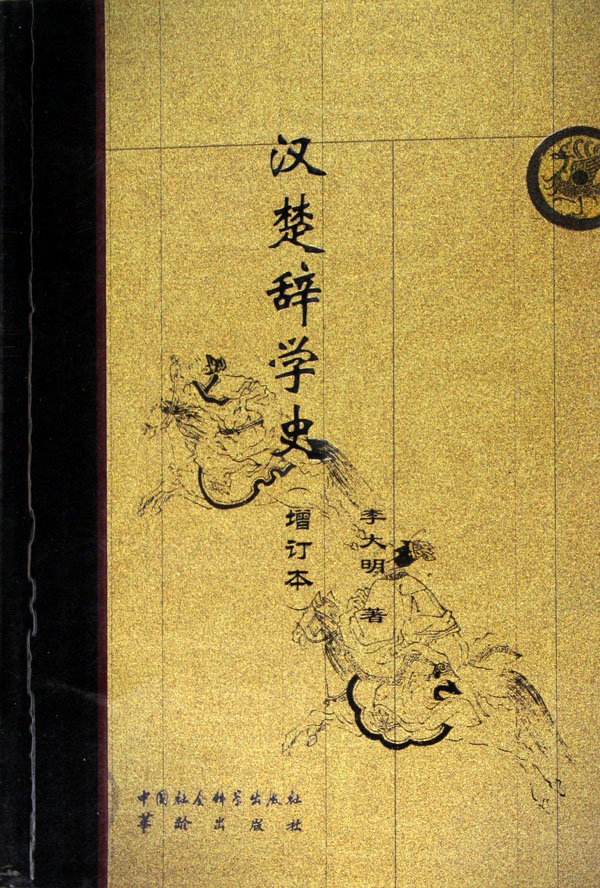 汉楚辞学史
（增订本）
李大明 著
中国社会科学出版社
华龄出版社